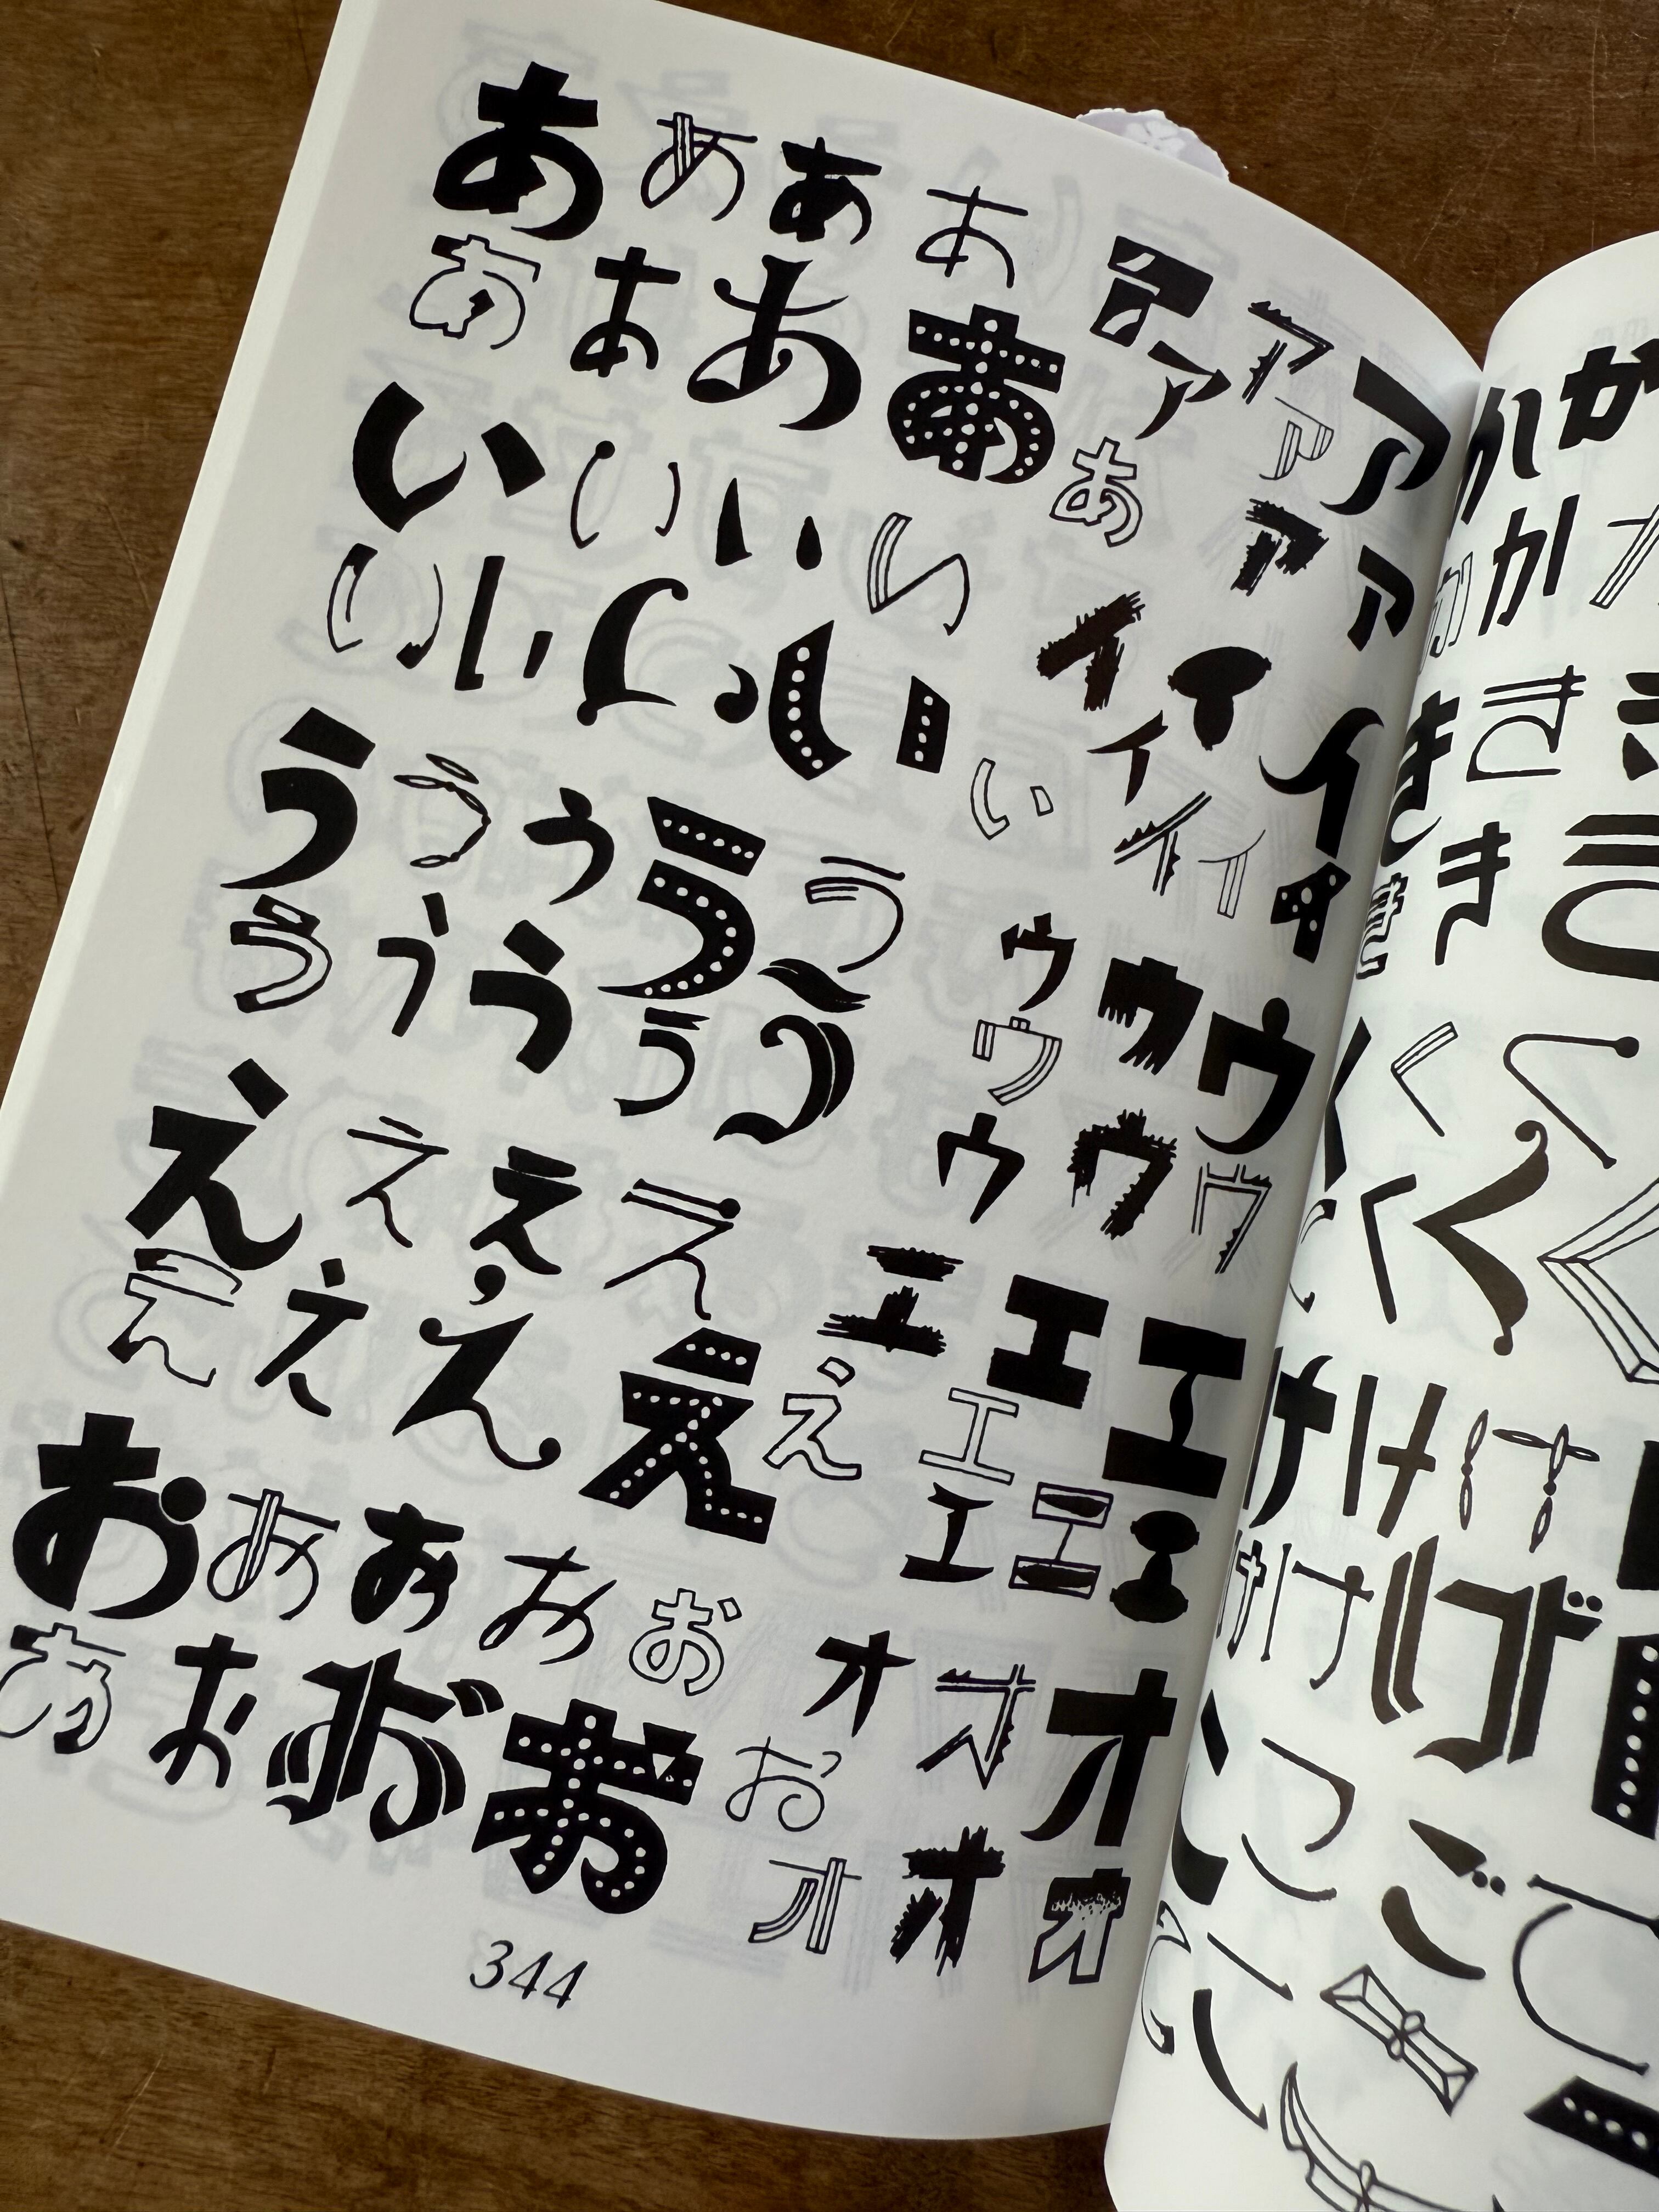 ああああ
ああああ
あ
アア
アアア
アア
いいいい
いいいい
い
イイイ
イイイイ
うううううう
ううううう
ウウウ
ウウウウ
ええええ
ええええ
え
エエエ
エエエエ
おおおおお
おおおおお
オオオ
オオオ
344
かか
かかか
きき
きき
くくく
くくく
けけけ
けけげ
こ
ご